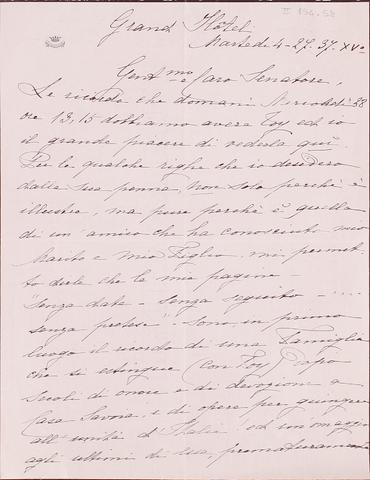 II 156.58
Grand Hotel
Martedì 4-27-37-XVº
Gent.mo e Caro Senatore,
Le ricordo che domani Mercoledì 28
ore 13,15 dobbiamo avere Foy ed io
il grande piacere di vederla qui.
Per le qualche righe che io desidero
dalla sua penna, non solo perchè è
illustre, ma pure perchè è quella
di un amico che ha conosciuto mio
Marito e mio Figlio, mi permet-
to dirle che le mie pagine -
"Senza date - Senza seguito - ...
senza pretese" - Sono, in primo
luogo il ricordo di una Famiglia
che si estingue (con Foy) dopo
Secoli di onore e di devozione a
Casa Savoia, e di opere per giungere
all'unità d'Italia! ed un omaggio
agli ultimi di essa, prematuramente